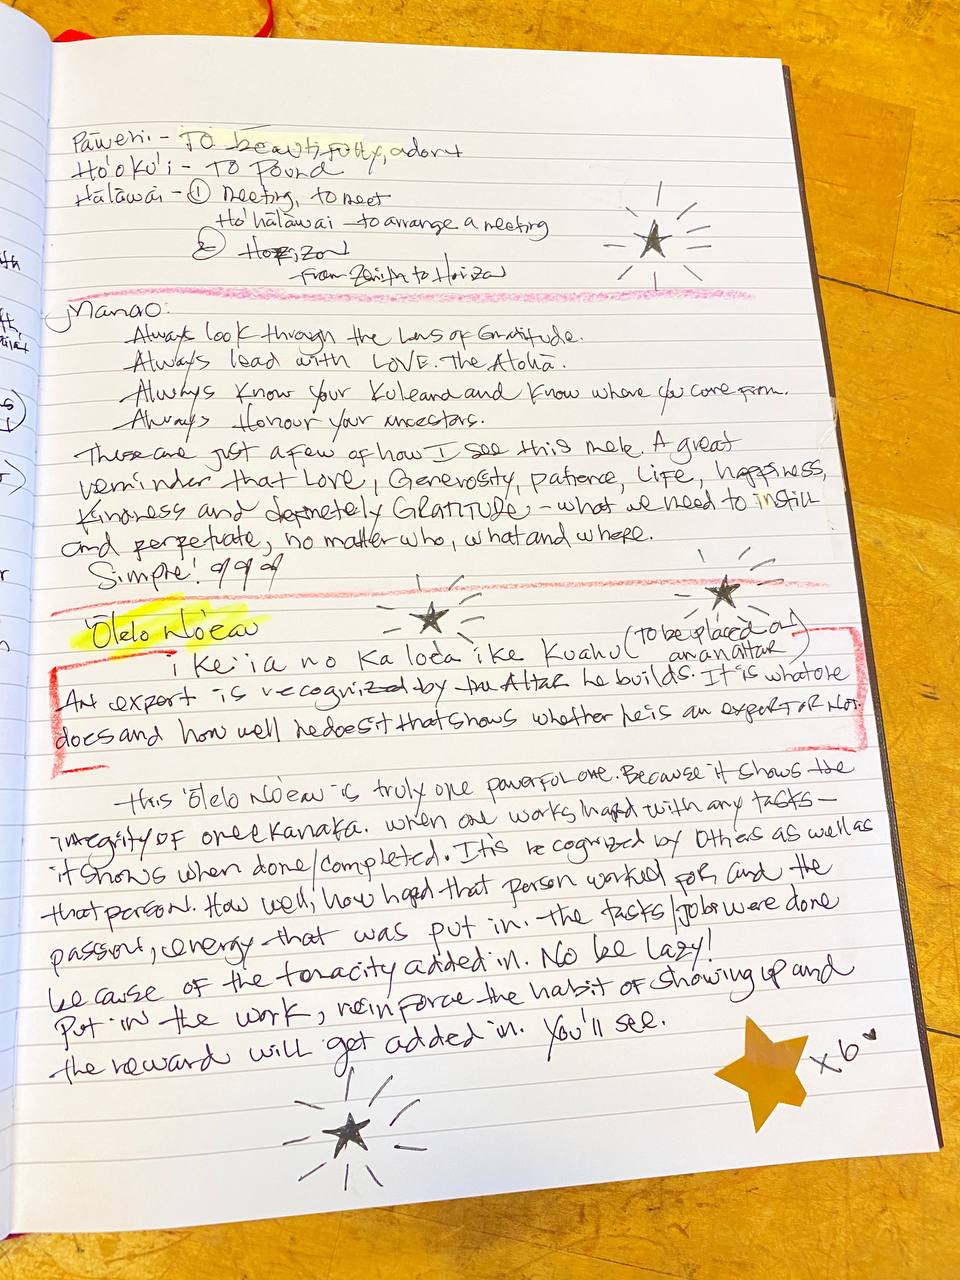 Pāwehi - To beautifully, adorn
Ho'o Ku'i - To Pound
Hālāwai - ① meeting, to meet
Ho'hālāwai - to arrange a meeting
② Horizon
- From Zenith to Horizon
Manao:
Always look through the Lens of Gratitude.
Always lead with LOVE. The Alohā.
Always know your Kuleana and know where you come from.
Always Honour your ancestors.
These are just a few of how I see this mele. A great
reminder that Love, Generosity, patience, Life, happiness,
Kindness and definetely GRATITUDE - what we need to instill
and perpetuate, no matter who, what and where.
Simple! 999
'Ōlelo No'eau
i ke ia no ka loea ike Kuahu (To be placed on
an an altar)
An expert is recognized by the Altar he builds. It is what one
does and how well he does it that shows whether he is an expert or not.
This 'Ōlelo No'eau is truly one powerful one. Because it shows the
integrity of one Kanaka. When one works hard with any tasks -
it shows when done/completed. It's recognized by others as well as
that person. How well, how hard that person worked for and the
passion, energy that was put in. The tasks/jobs were done
because of the tenacity added in. No be lazy!
Put in the work, reinforce the habit of showing up and
the reward will get added in. You'll see.
x6